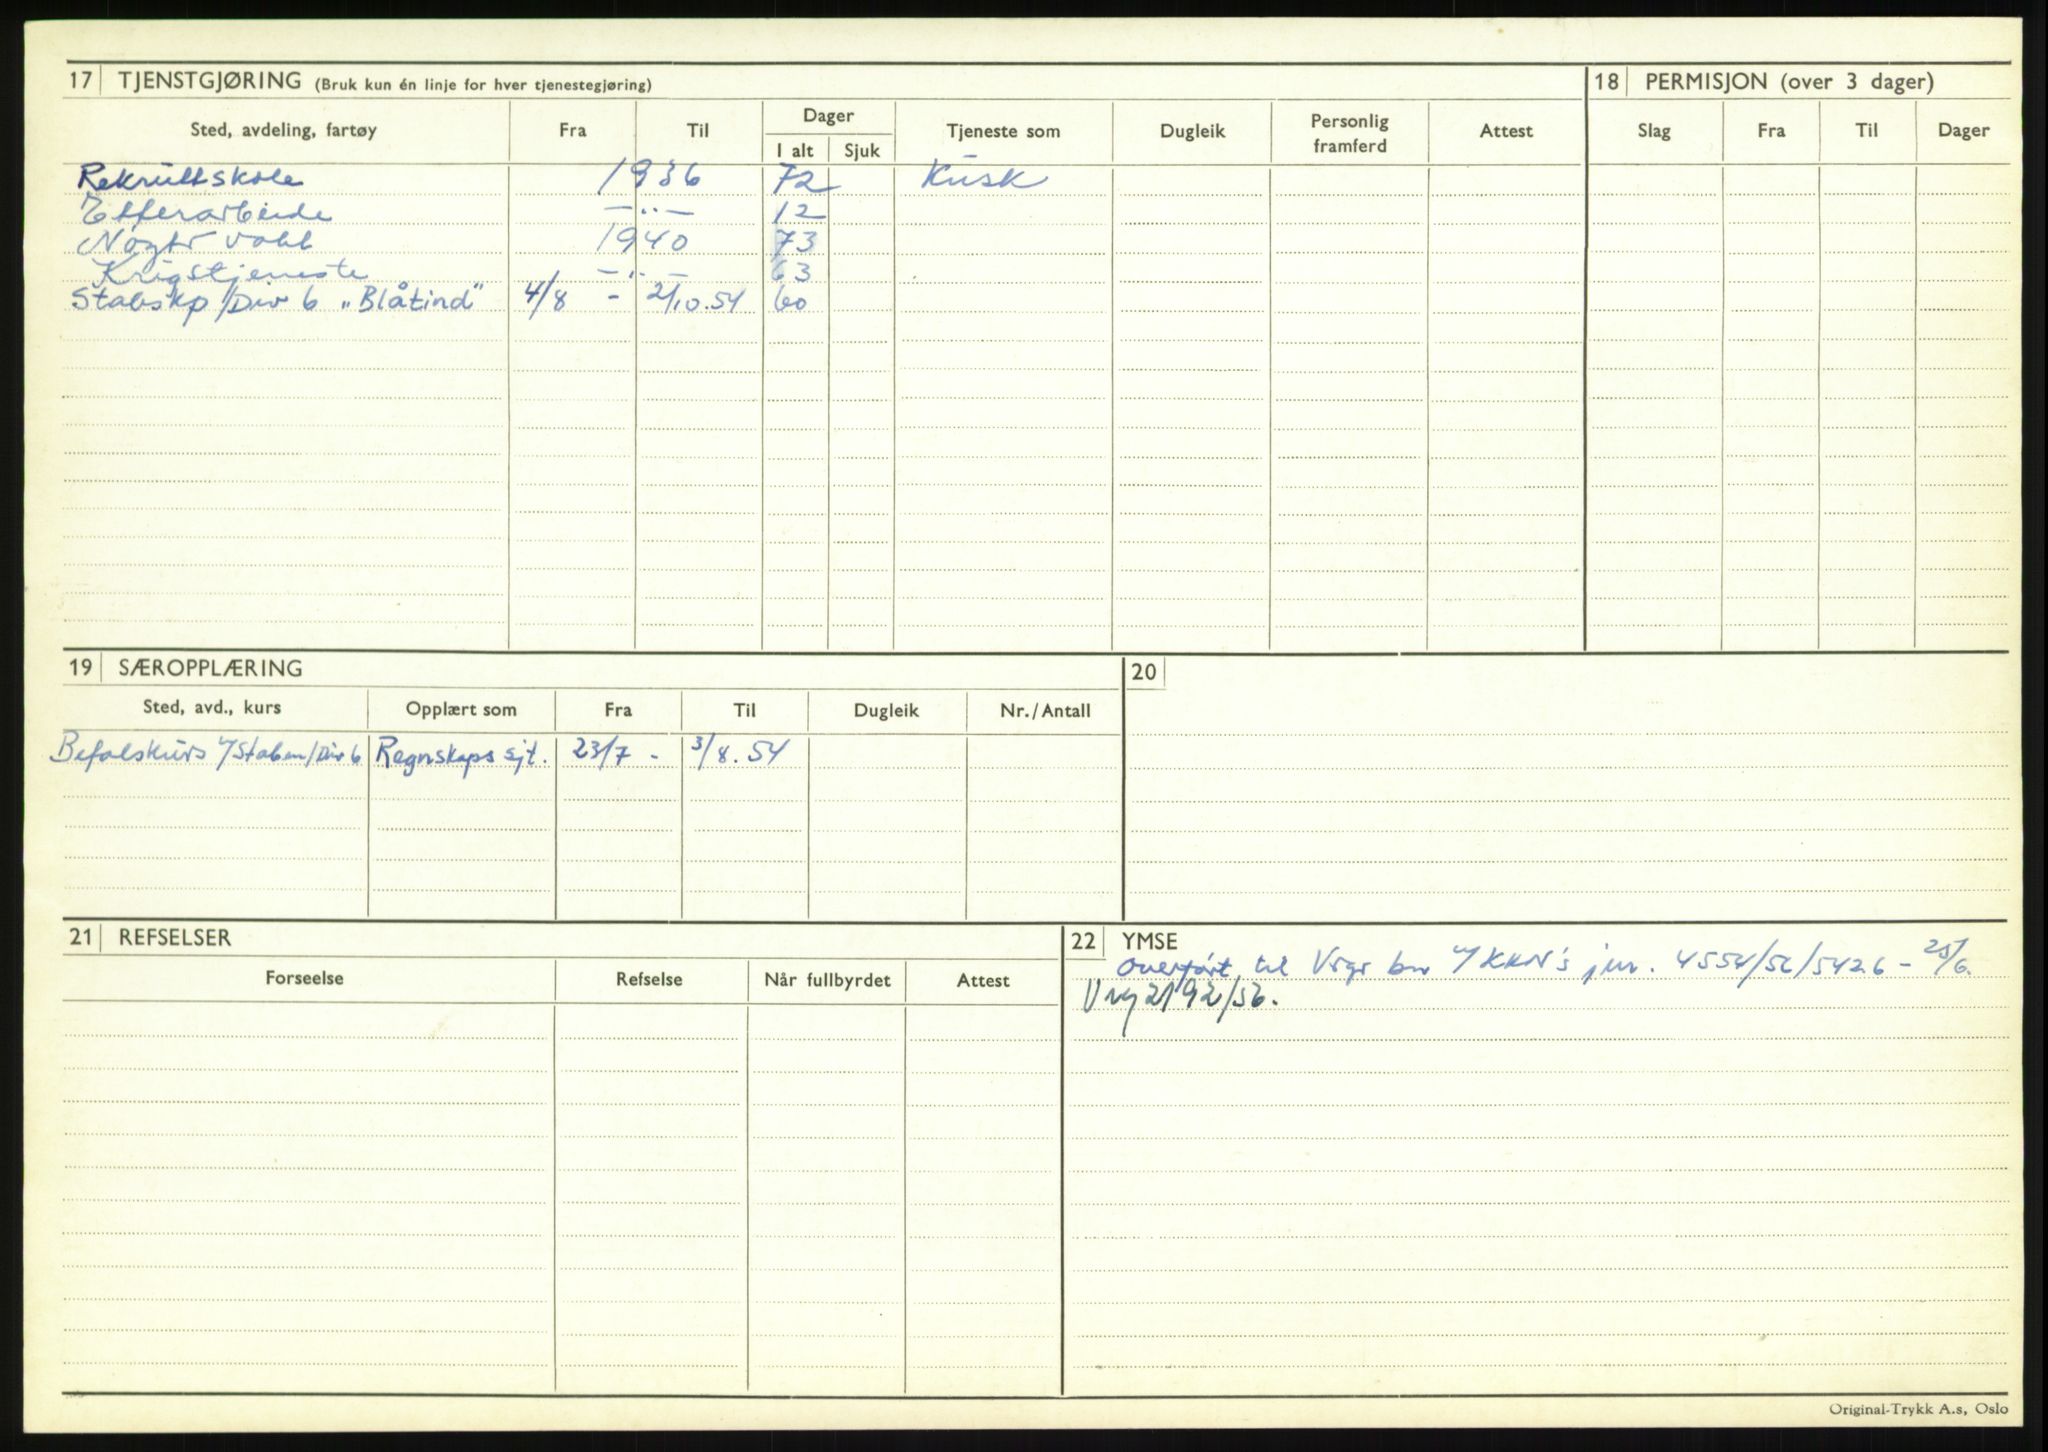 17 TJENSTGJØRING (Bruk kun én linje for hver tjenestegjøring)
18 PERMISJON (over 3 dager)
Sted, avdeling, fartøy Fra Til Dager I alt Sjuk Tjeneste som Dugleik Personlig framferd Attest Slag Fra Til Dager
Rekruttskole 1936 72 Kusk
Etterarbeide —"— 12
Nøytr vakt 1940 73
Krigstjeneste —"— 63
Stabskp/Div 6 "Blåtind" 4/8 - 2/10.54 60
19 SÆROPPLÆRING
20
Sted, avd., kurs Opplært som Fra Til Dugleik Nr./Antall
Befalskurs v/Staben/Div 6 Regnskaps sjt. 23/7 - 3/8.54
21 REFSELSER
22 YMSE
Forseelse Refselse Når fullbyrdet Attest
Overført til jnr. 4554/56/542.6 - 25/6.
2192/56.
Original-Trykk A.s, Oslo